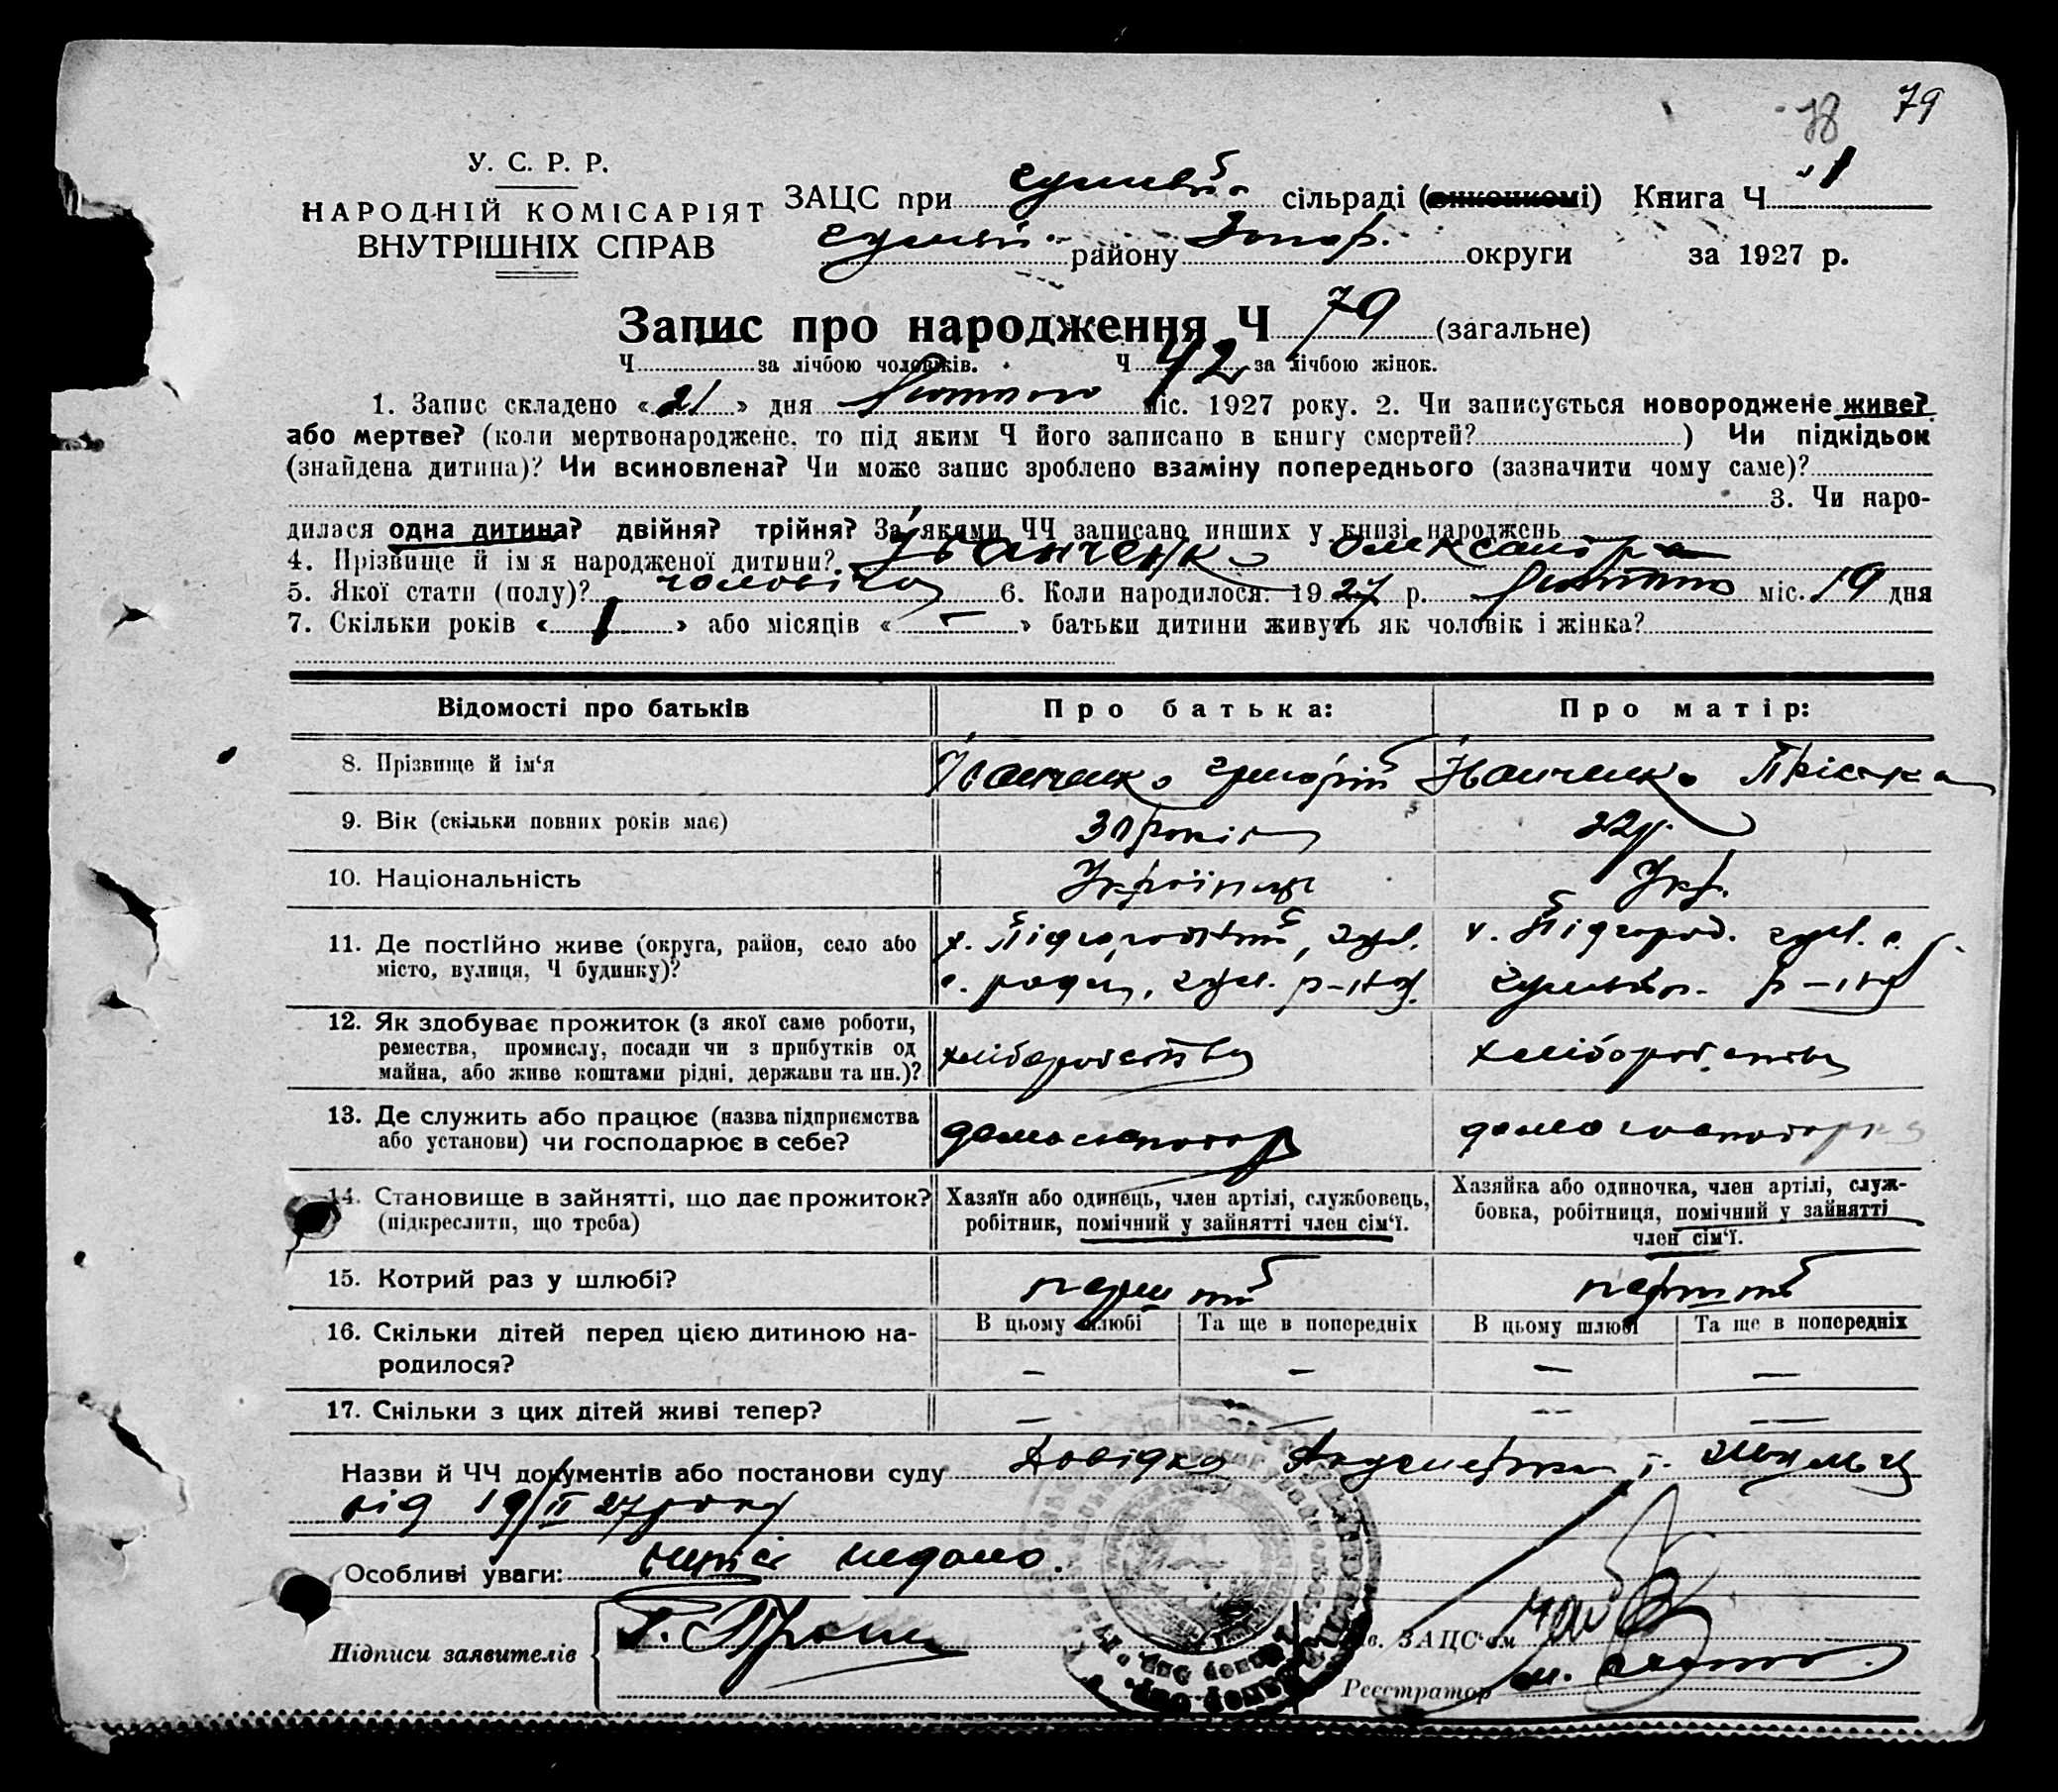 78 79
У. С. Р. Р.
НАРОДНІЙ КОМІСАРІЯТ
ВНУТРІШНІХ СПРАВ
ЗАЦС при сільраді (виконкомі) Книга Ч 1
району Запор. округи за 1927 р.
Запис про народження Ч 79 (загальне)
Ч за лічбою чоловіків. Ч 42 за лічбою жінок.
1. Запис складено « 21 » дня Лютого міс. 1927 року. 2. Чи записується новороджене живе?
або мертве? (коли мертвонароджене, то під яким Ч його записано в книгу смертей? ) Чи підкідьок
(знайдена дитина)? Чи всиновлена? Чи може запис зроблено взаміну попереднього (зазначити чому саме)?
3. Чи наро-
дилася одна дитина? двійня? трійня? За якими ЧЧ записано инших у книзі народжень
4. Прізвище й ім'я народженої дитини? Іванченко Олександра
5. Якої стати (полу)? 6. Коли народилося: 1927 р. Лютого міс. 19 дня
7. Скільки років « 1 » або місяців « – » батьки дитини живуть як чоловік і жінка?
Відомості про батьків Про батька: Про матір:
8. Прізвище й ім‘я Іванченко Григорій Іванченко Пріська
9. Вік (скільки повних років має) років 22 р.
10. Національність Українець Укр.
11. Де постійно живе (округа, район, село або х. с. х. Підгород. с.
місто, вулиця, Ч будинку)? с. ради, р-ну р-ну
12. Як здобуває прожиток (з якої саме роботи,
ремества, промислу, посади чи з прибутків од хліборобство хліборобство
майна, або живе коштами рідні, держави та ин.)?
13. Де служить або працює (назва підприємства
або установи) чи господарює в себе? домогосподар домогосподарка
14. Становище в зайнятті, що дає прожиток? Хазяїн або одинець, член артілі, службовець, Хазяйка або одиночка, член артілі, служ-
(підкреслити, що треба) робітник, помічний у зайнятті член сім‘ї. бовка, робітниця, помічний у зайнятті
член сім‘ї.
15. Котрий раз у шлюбі? перший перший
16. Скільки дітей перед цією дитиною на- В цьому шлюбі Та ще в попередніх В цьому шлюбі Та ще в попередніх
родилося? – – – –
17. Скільки з цих дітей живі тепер? – – – –
Назви й ЧЧ документів або постанови суду Довідка Акушерки
від 19/II 27 року
Особливі уваги: недано.
Підписи заявителів
Зав. ЗАЦС‘ом
Реєстратор